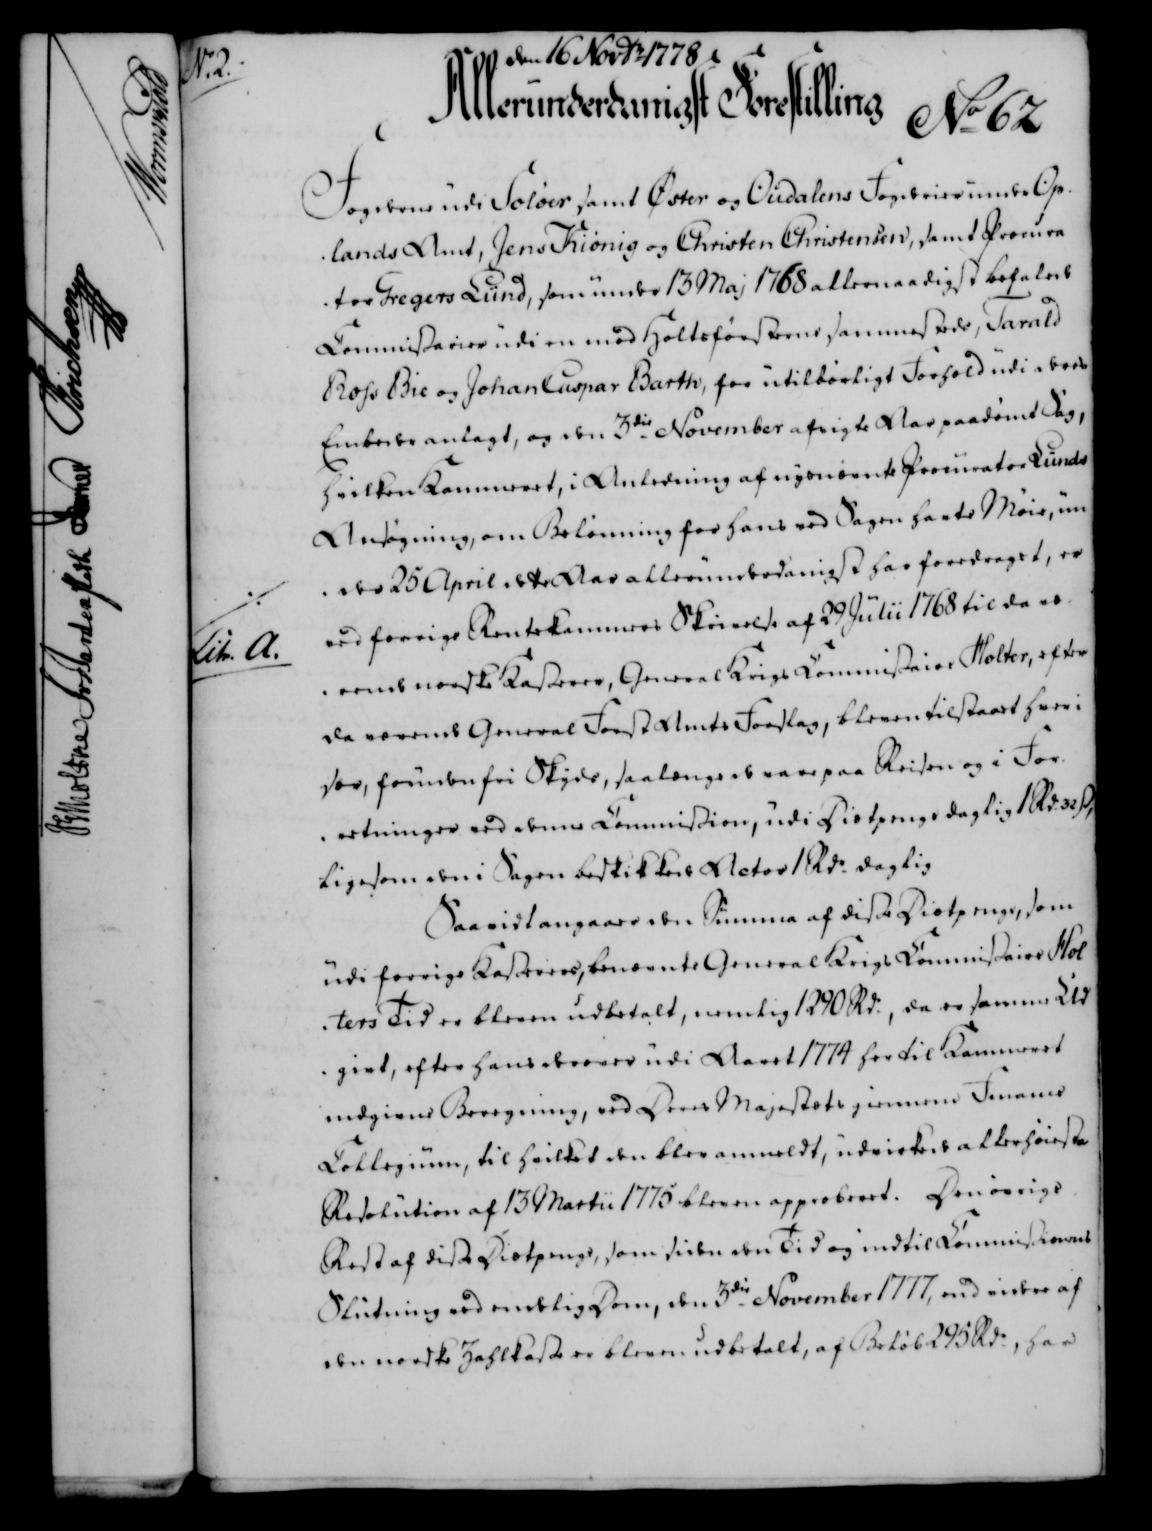 No. 2.
den 16 Novbr 1778
Allerunderdanigst Forestilling
No 62
Fogderne udi Soløer samt Øster og Oudalens Fogderier under Op-
lands Amt, Jens Kiönig og Christen Christensen, samt Procura
tor Gregers Lund, som under 13 Maj 1768 allernaadigst befalede
Commissarier udi en mod Holtsførsterne sammesteds, Tarald
Ross Bie og Johan Caspar Barth, for utilbørligt Forhold udi deres
Embeder anlagt, og den 3die November afvigte Aar paadømt Sag,
hvilken Kammeret, i Anledning af nysnevnte Procurator Lunds
Ansøgning, om Belønning for hans ved Sagen havte Møie, un
der 25 April dette Aar allerunderdanigst har foredraget, er
ved forrige Rentekammers Skrivelse af 29 Julii 1768 til da væ-
Lit. A.
rende norske Kasserer, General Krigs Commissaire Holter, efter
da værende General Forst Amts Forslag, bleven tilstaaet hver i
sær, foruden fri Skyds, saalænge de vare paa Reisen og i For-
retninger ved denne Commission, udi Diætpenge daglig 1 Rd. 32 s,
ligesom den i Sagen beskikkede Actor 1 Rdr. daglig
Saavidt angaaer den Summa af disse Diætpenge, som
udi forrige Kasserers, benævnte General Krigs Commissaire Hol
ters Tid er bleven udbetalt, nemlig 1290 Rd., da er samme Ud
givt, efter hans derover udi Aaret 1774 her til Kammeret
indgivne Beregning, ved Deres Majestæts giennem Finance
Collegium, til hvilket den blev anmeldt, udvirkede allerhøieste
Resolution af 13 Martii 1775 bleven approberet. Den øvrige
Rest af disse Diætpenge, som siden den Tid og indtil Commissionens
Slutning ved endelig Dom, den 3die November 1777, end videre af
den norske Zahlkasse er bleven udbetalt, af Beløb 295 Rdr., har